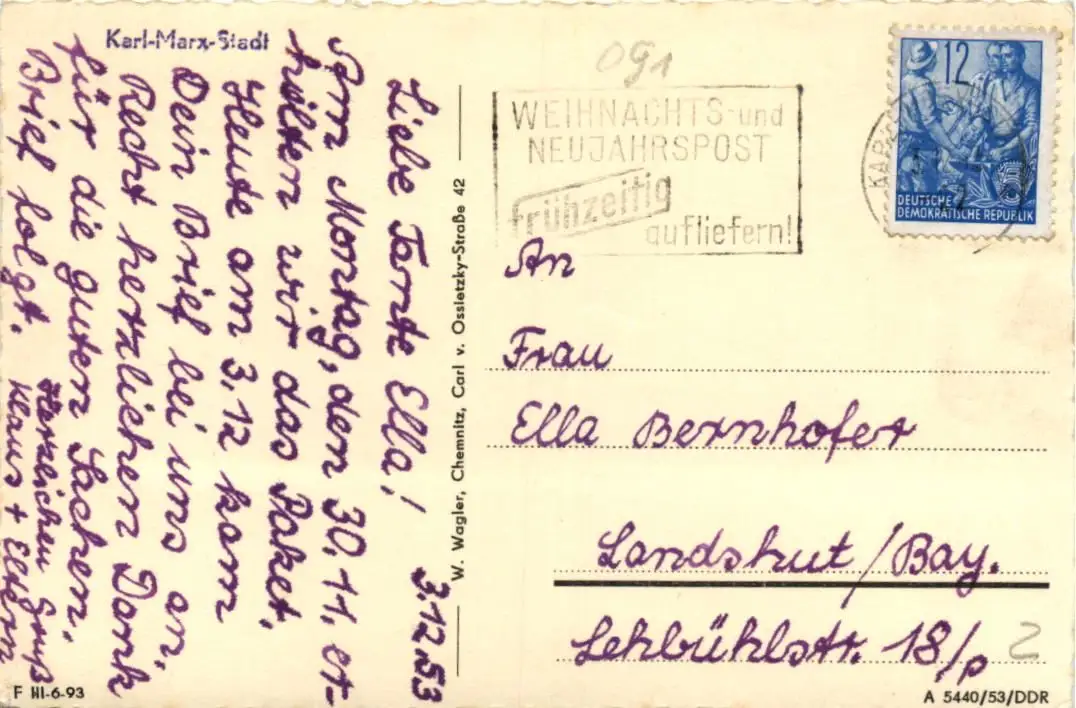 Karl-Marx-Stadt
Liebe Tante Ella!
3.12.53
Am Montag, den 30.11. er-
hielten wir das Paket.
Heute am 3.12 kam
Dein Brief bei uns an.
Recht herzlichen Dank
für die guten Sachen.
Brief folgt.
Herzlichen Gruß
Klaus + Eltern
W. Wagler, Chemnitz, Carl v. Ossietzky-Straße 42
091
WEIHNACHTS- und
NEUJAHRSPOST
frühzeitig
aufliefern!
12
DEUTSCHE
DEMOKRATISCHE REPUBLIK
An
Frau
Ella Bernhofer
Landshut / Bay.
Lehbühlstr. 18/p
2
F III-6-93
A 5440/53/DDR